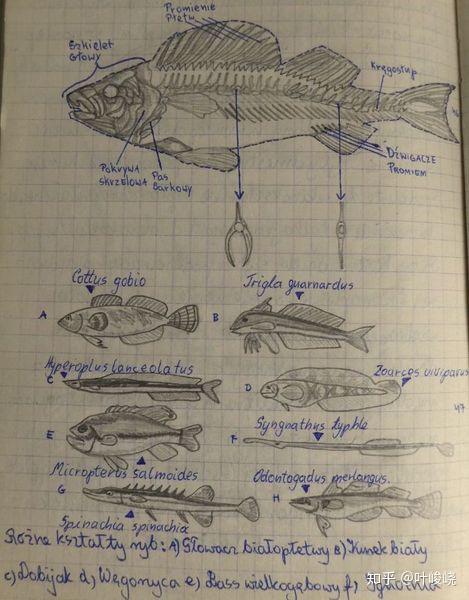 Promienie
Płetw
Szkielet
Głowy
Kręgosłup
Pokrywa
skrzelowa
Pas
Barkowy
Dźwigacze
Promieni
Cottus gobio
Trigla guarnardus
A
B
Hyperoplus lanceolatus
Zoarces viviparus
C
D
47
E
Syngnathus typhle
F
Micropterus salmoides
Odontogadus merlangus.
G
H
Spinachia spinachia
Różne kształty ryb: A) Głowacz białopłetwy B) Kurek biały
c) Dobijak d) Węgorzyca e) Bass wielkogębowy f) Iglicznia
知乎 @叶峻峣